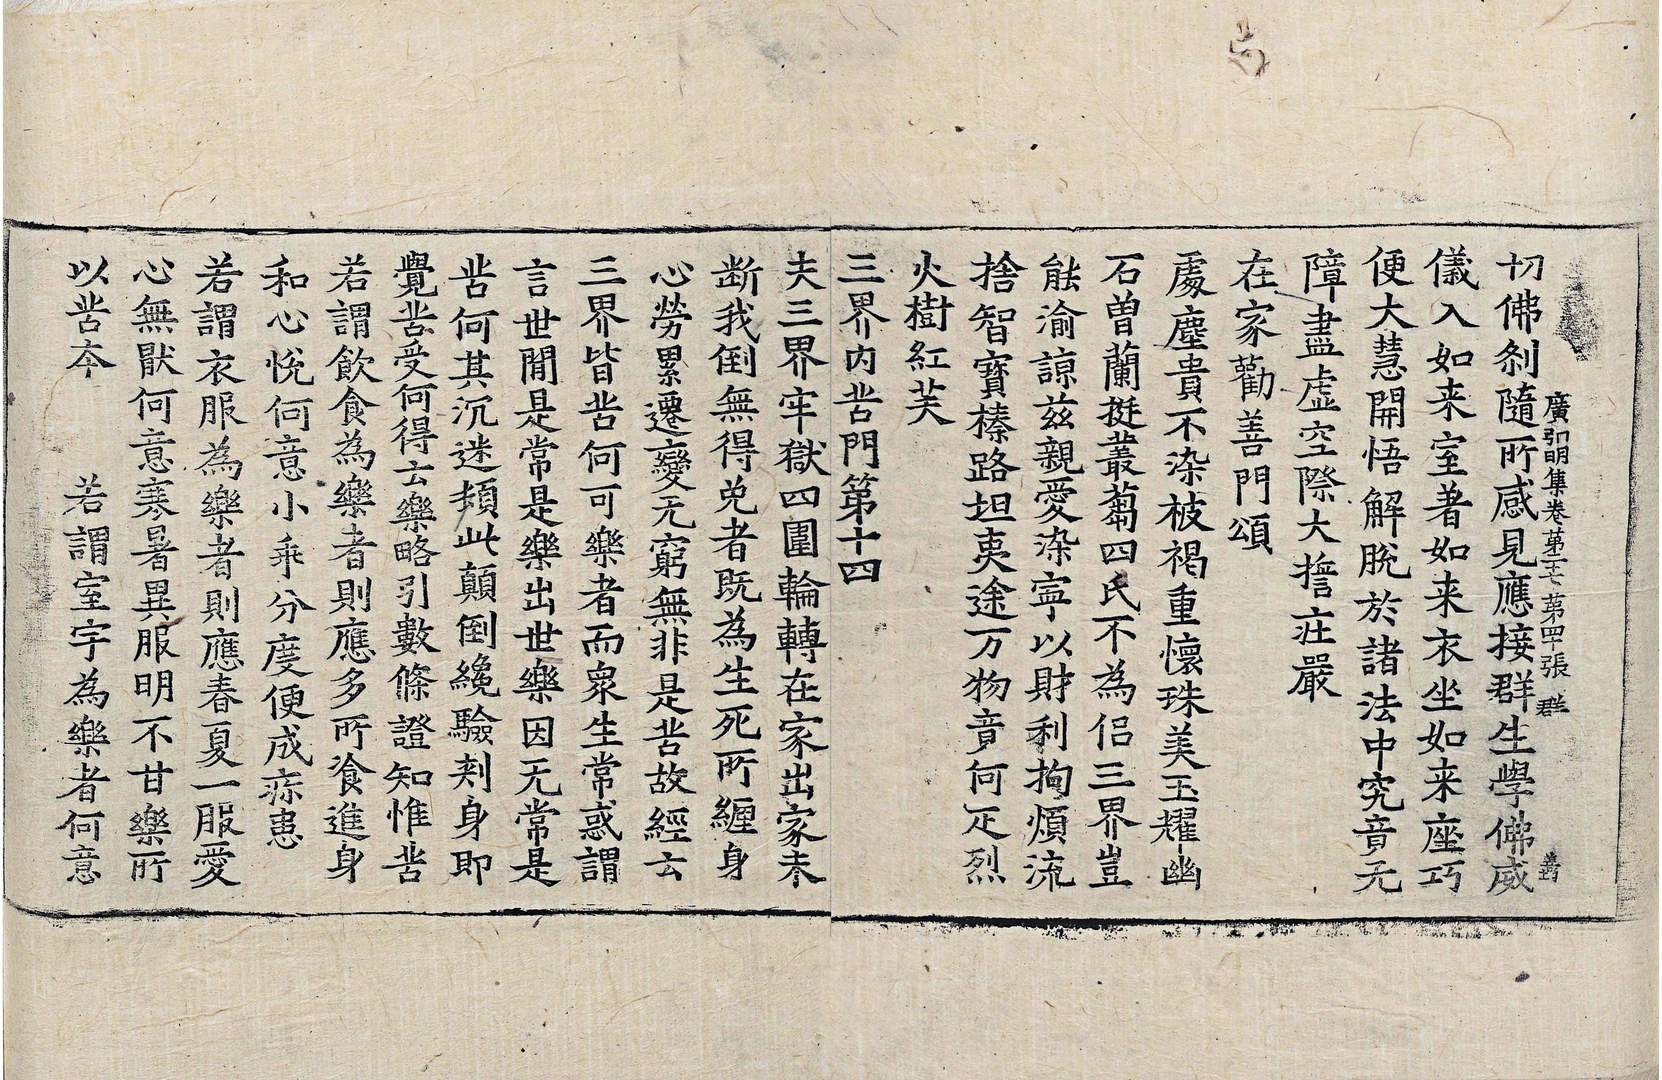 廣弘明集卷第二十七 第四十張 群
切佛剎隨所感見應接群生學佛威
儀入如来室著如来衣坐如来座巧
便大慧開悟解脫於諸法中究竟无
障盡虛空際大擔莊嚴
在家勸善門頌
處塵貴不染被褐重懷珠美玉耀幽
石曾蘭挺叢蒭四氏不為侶三界豈
能渝諒茲親愛染寧以財利拘煩流
捨智寶榛路坦夷途万物竟何足烈
火樹紅芙
三界内苦門第十四
夫三界牢獄四圍輪轉在家出家未
断我倒無得免者既為生死所纏身
心勞累遷變无窮無非是苦故經云
三界皆苦何可樂者而衆生常惑謂
言世間是常是樂出世樂因无常是
苦何其沉迷頻此顛倒纔驗刾身即
覺苦受何得云樂略引數條證知惟苦
若謂飲食為樂者則應多所飡進身
和心悅何意小乖分度便成疹患
若謂衣服為樂者則應春夏一服愛
心無猒何意寒暑異服明不甘樂所
以苦夲 若謂室宇為樂者何意